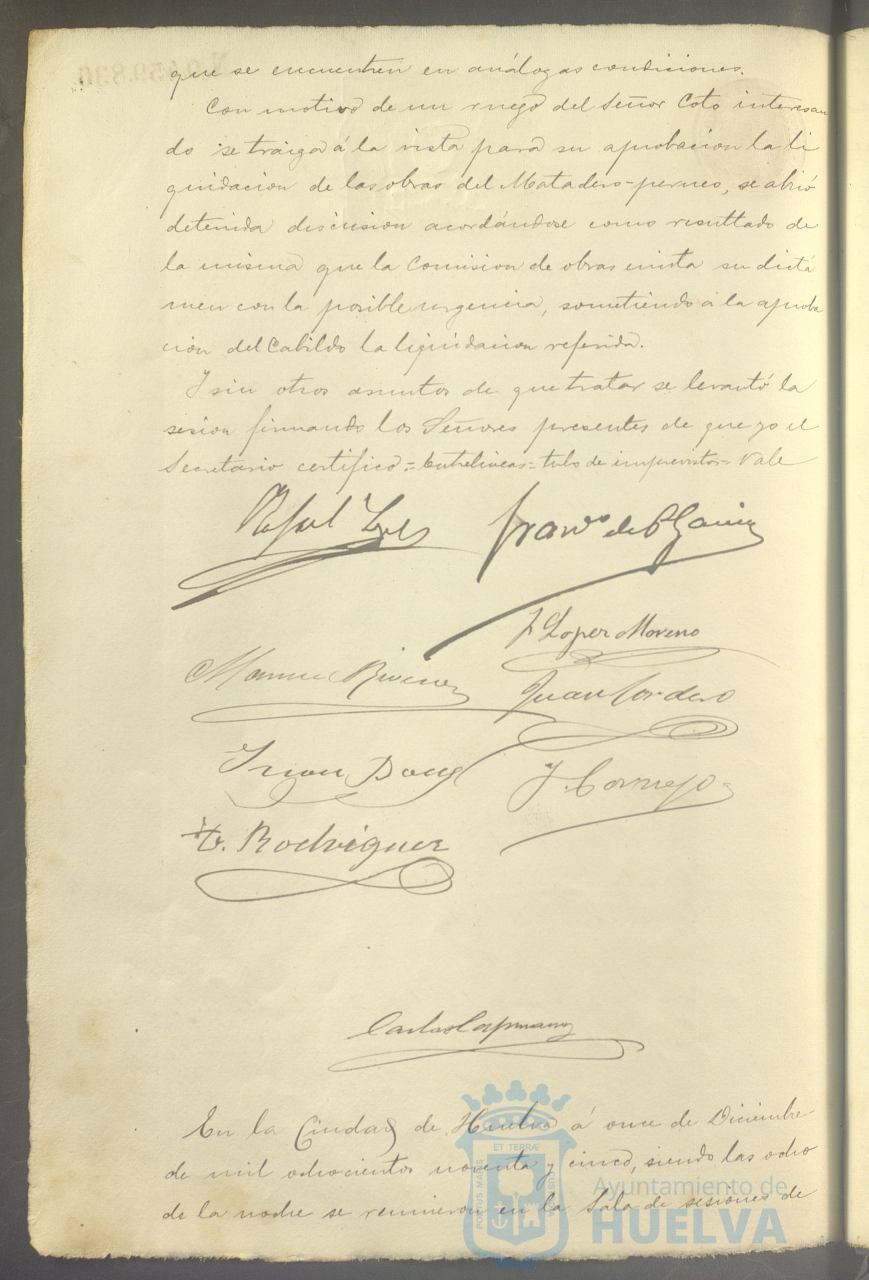 que se encuentren en análogas condiciones.
Con motivo de un ruego del Señor Coto interesan
do se traiga á la vista para su aprobacion la li
quidacion de las obras del Matadero-perneo, se abrió
detenida discusion acordándose como resultado de
la misma que la Comision de obras emita su dictá
men con la posible urgencia, sometiendo á la aproba
cion del Cabildo la liquidacion referida.
Y sin otros asuntos de que tratar se levantó la
sesion firmando los Señores presentes de que yo el
Secretario certifico = Entrelineas = tulo de imprevistos = Vale
Rafael Franco de P. Garcia
J Lopez Moreno
Juan Cordero
Juan
J. Cornejo
Rodriguez
Carlos
En la Ciudad de Huelva á once de Diciembre
de mil ochocientos noventa y cinco, siendo las ocho
de la noche se reunieron en la Sala de sesiones de
PORTUS MARIS ET TERRÆ CUSTODIA
Ayuntamiento de
HUELVA